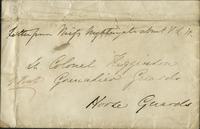 Letter from Miss Nightingale about
Lt Colonel Higginson
Grenadier Guards
Horse Guards